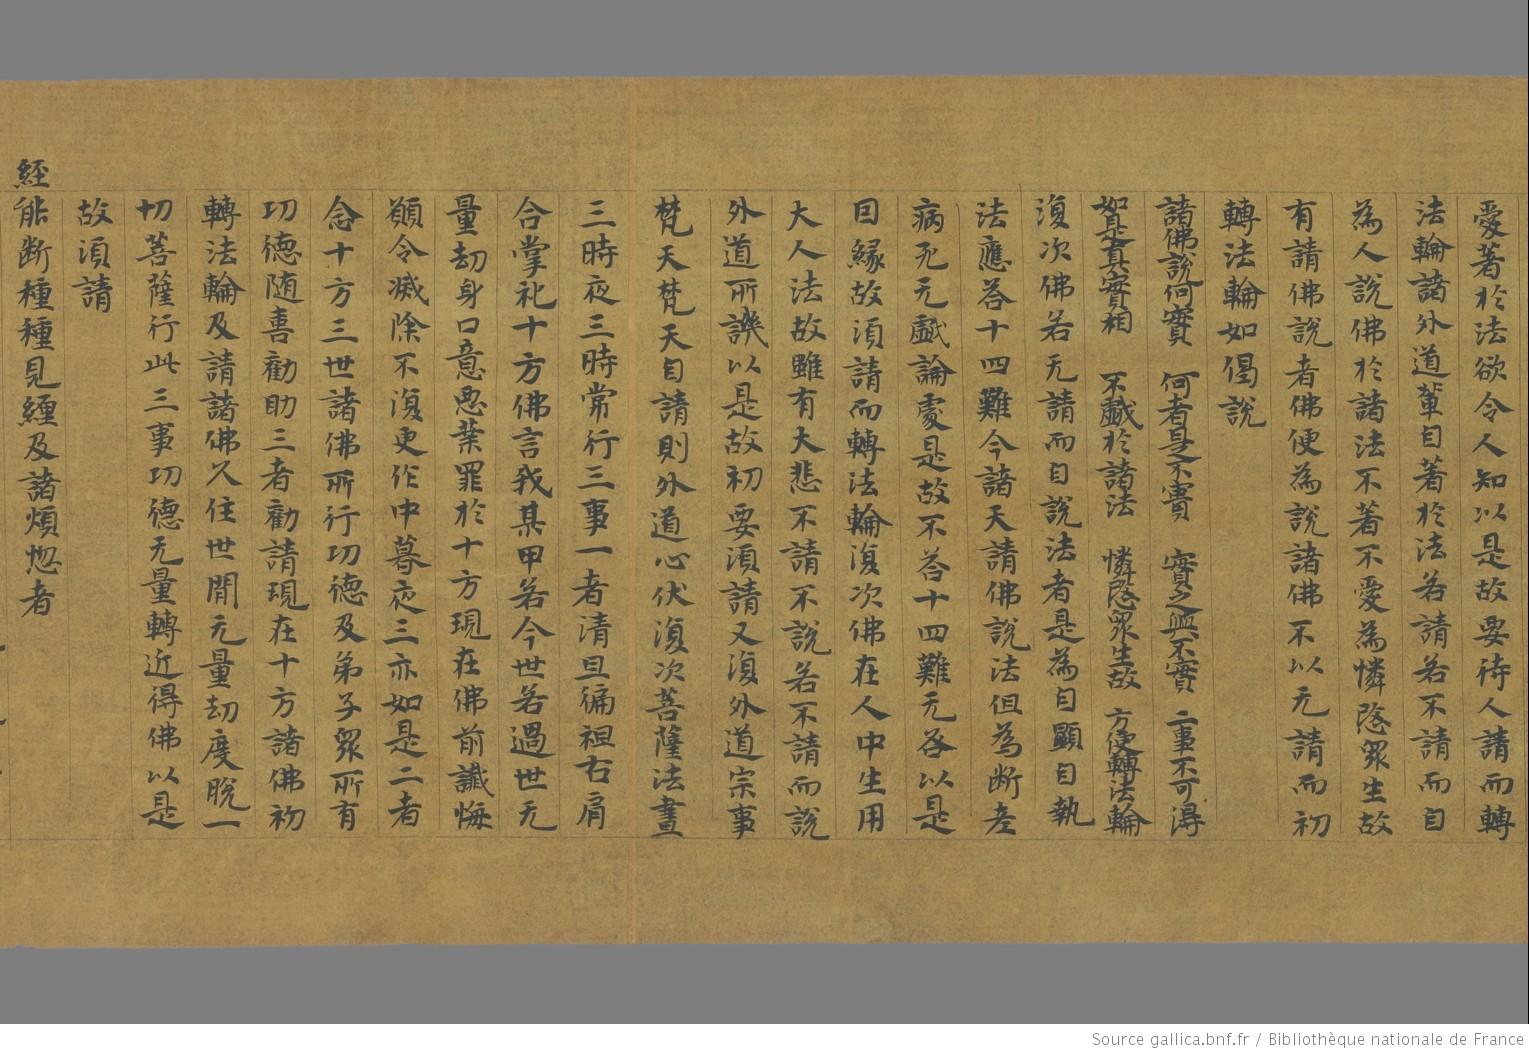 愛著於法欲令人知以是故要待人請而轉
法輪諸外道輩自著於法若請若不請而自
為人說佛於諸法不著不愛為憐愍眾生故
有請佛說者佛便為說諸佛不以无請而初
轉法輪如偈說
諸佛說何實 何者是不實 實之與不實 二事不可得
如是真實相 不戲於諸法 憐愍眾生故 方便轉法輪
復次佛若无請而自說法者是為自顯自執
法應答十四難今諸天請佛說法但為斷老
病死无戲論處是故不答十四難无咎以是
因緣故須請而轉法輪復次佛在人中生用
大人法故雖有大悲不請不說若不請而說
外道所譏以是故初要須請又復外道宗事
梵天梵天自請則外道心伏復次菩薩法晝
三時夜三時常行三事一者清旦徧袒右肩
合掌礼十方佛言我某甲若今世若過世无
量劫身口意惡業罪於十方現在佛前懺悔
願令滅除不復更作中暮夜三亦如是二者
念十方三世諸佛所行功德及弟子眾所有
功德随喜勸助三者勸請現在十方諸佛初
轉法輪及請諸佛久住世間无量劫度脫一
切菩薩行此三事功德无量轉近得佛以是
故須請
經能斷種種見纏及諸煩惱者
Source gallica.bnf.fr / Bibliothèque nationale de France